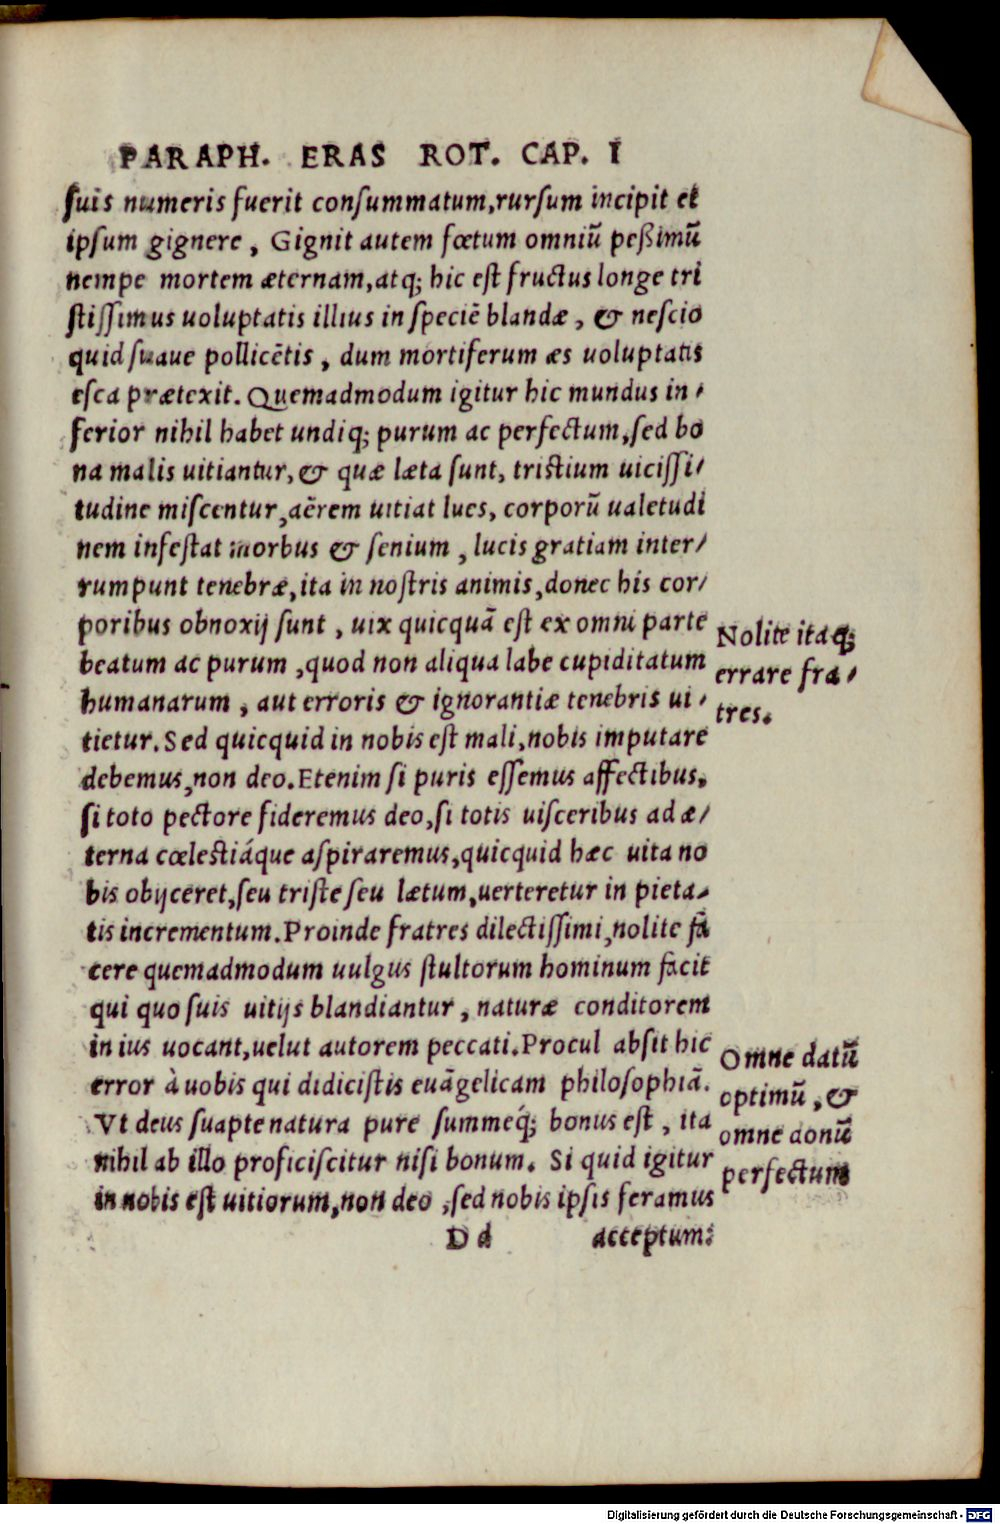 PARAPH. ERAS ROT. CAP. I
ſuis numeris fuerit conſummatum, rurſum incipit et
ipſum gignere, Gignit autem fœtum omniũ peßimũ
nempe mortem æternam, atq; hic eſt fructus longe tri
ſtiſſimus uoluptatis illius in ſpeciẽ blandæ, & neſcio
quid ſuaue pollicẽtis, dum mortiferum æs uoluptatis
eſca prætexit. Quemadmodum igitur hic mundus in/
ferior nihil habet undiq; purum ac perfectum, ſed bo
na malis uitiantur, & quæ læta ſunt, triſtium uiciſſi/
tudine miſcentur, aẽrem uitiat lues, corporũ ualetudi
nem infeſtat morbus & ſenium, lucis gratiam inter/
rumpunt tenebræ, ita in noſtris animis, donec his cor/
poribus obnoxij ſunt, uix quicquã eſt ex omni parte
beatum ac purum, quod non aliqua labe cupiditatum
humanarum, aut erroris & ignorantiæ tenebris ui/
tietur. Sed quicquid in nobis eſt mali, nobis imputare
debemus, non deo. Etenim ſi puris eſſemus affectibus,
ſi toto pectore fideremus deo, ſi totis uiſceribus ad æ/
terna cœleſtiáque aſpiraremus, quicquid hæc uita no
bis obijceret, ſeu triſte ſeu lætum, uerteretur in pieta/
tis incrementum. Proinde fratres dilectiſſimi, nolite fa
cere quemadmodum uulgus ſtultorum hominum facit
qui quo ſuis uitijs blandiantur, naturæ conditorem
in ius uocant, uelut autorem peccati. Procul abſit hic
error à uobis qui didiciſtis euãgelicam philoſophiã.
Vt deus ſuapte natura pure ſummeq́; bonus eſt, ita
nihil ab illo proficiſcitur niſi bonum. Si quid igitur
in nobis eſt uitiorum, non deo, ſed nobis ipſis feramus
Dd acceptum:
Nolite itaq;
errare fra/
tres.
Omne datũ
optimũ, &
omne donũ
perfectum
Digitalisierung gefördert durch die Deutsche Forschungsgemeinschaft - DFG